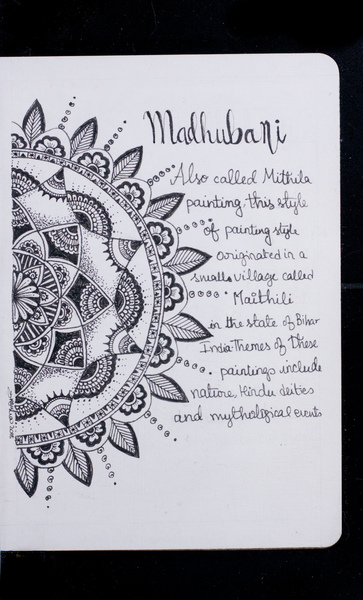 Madhubani
Also called Mithila
painting this style
of painting style
ooriginated in a
smalls village called
Maithili
in the state of Bihar
India. Themes of These
paintings include
nature, Hindu deities
and mythological events